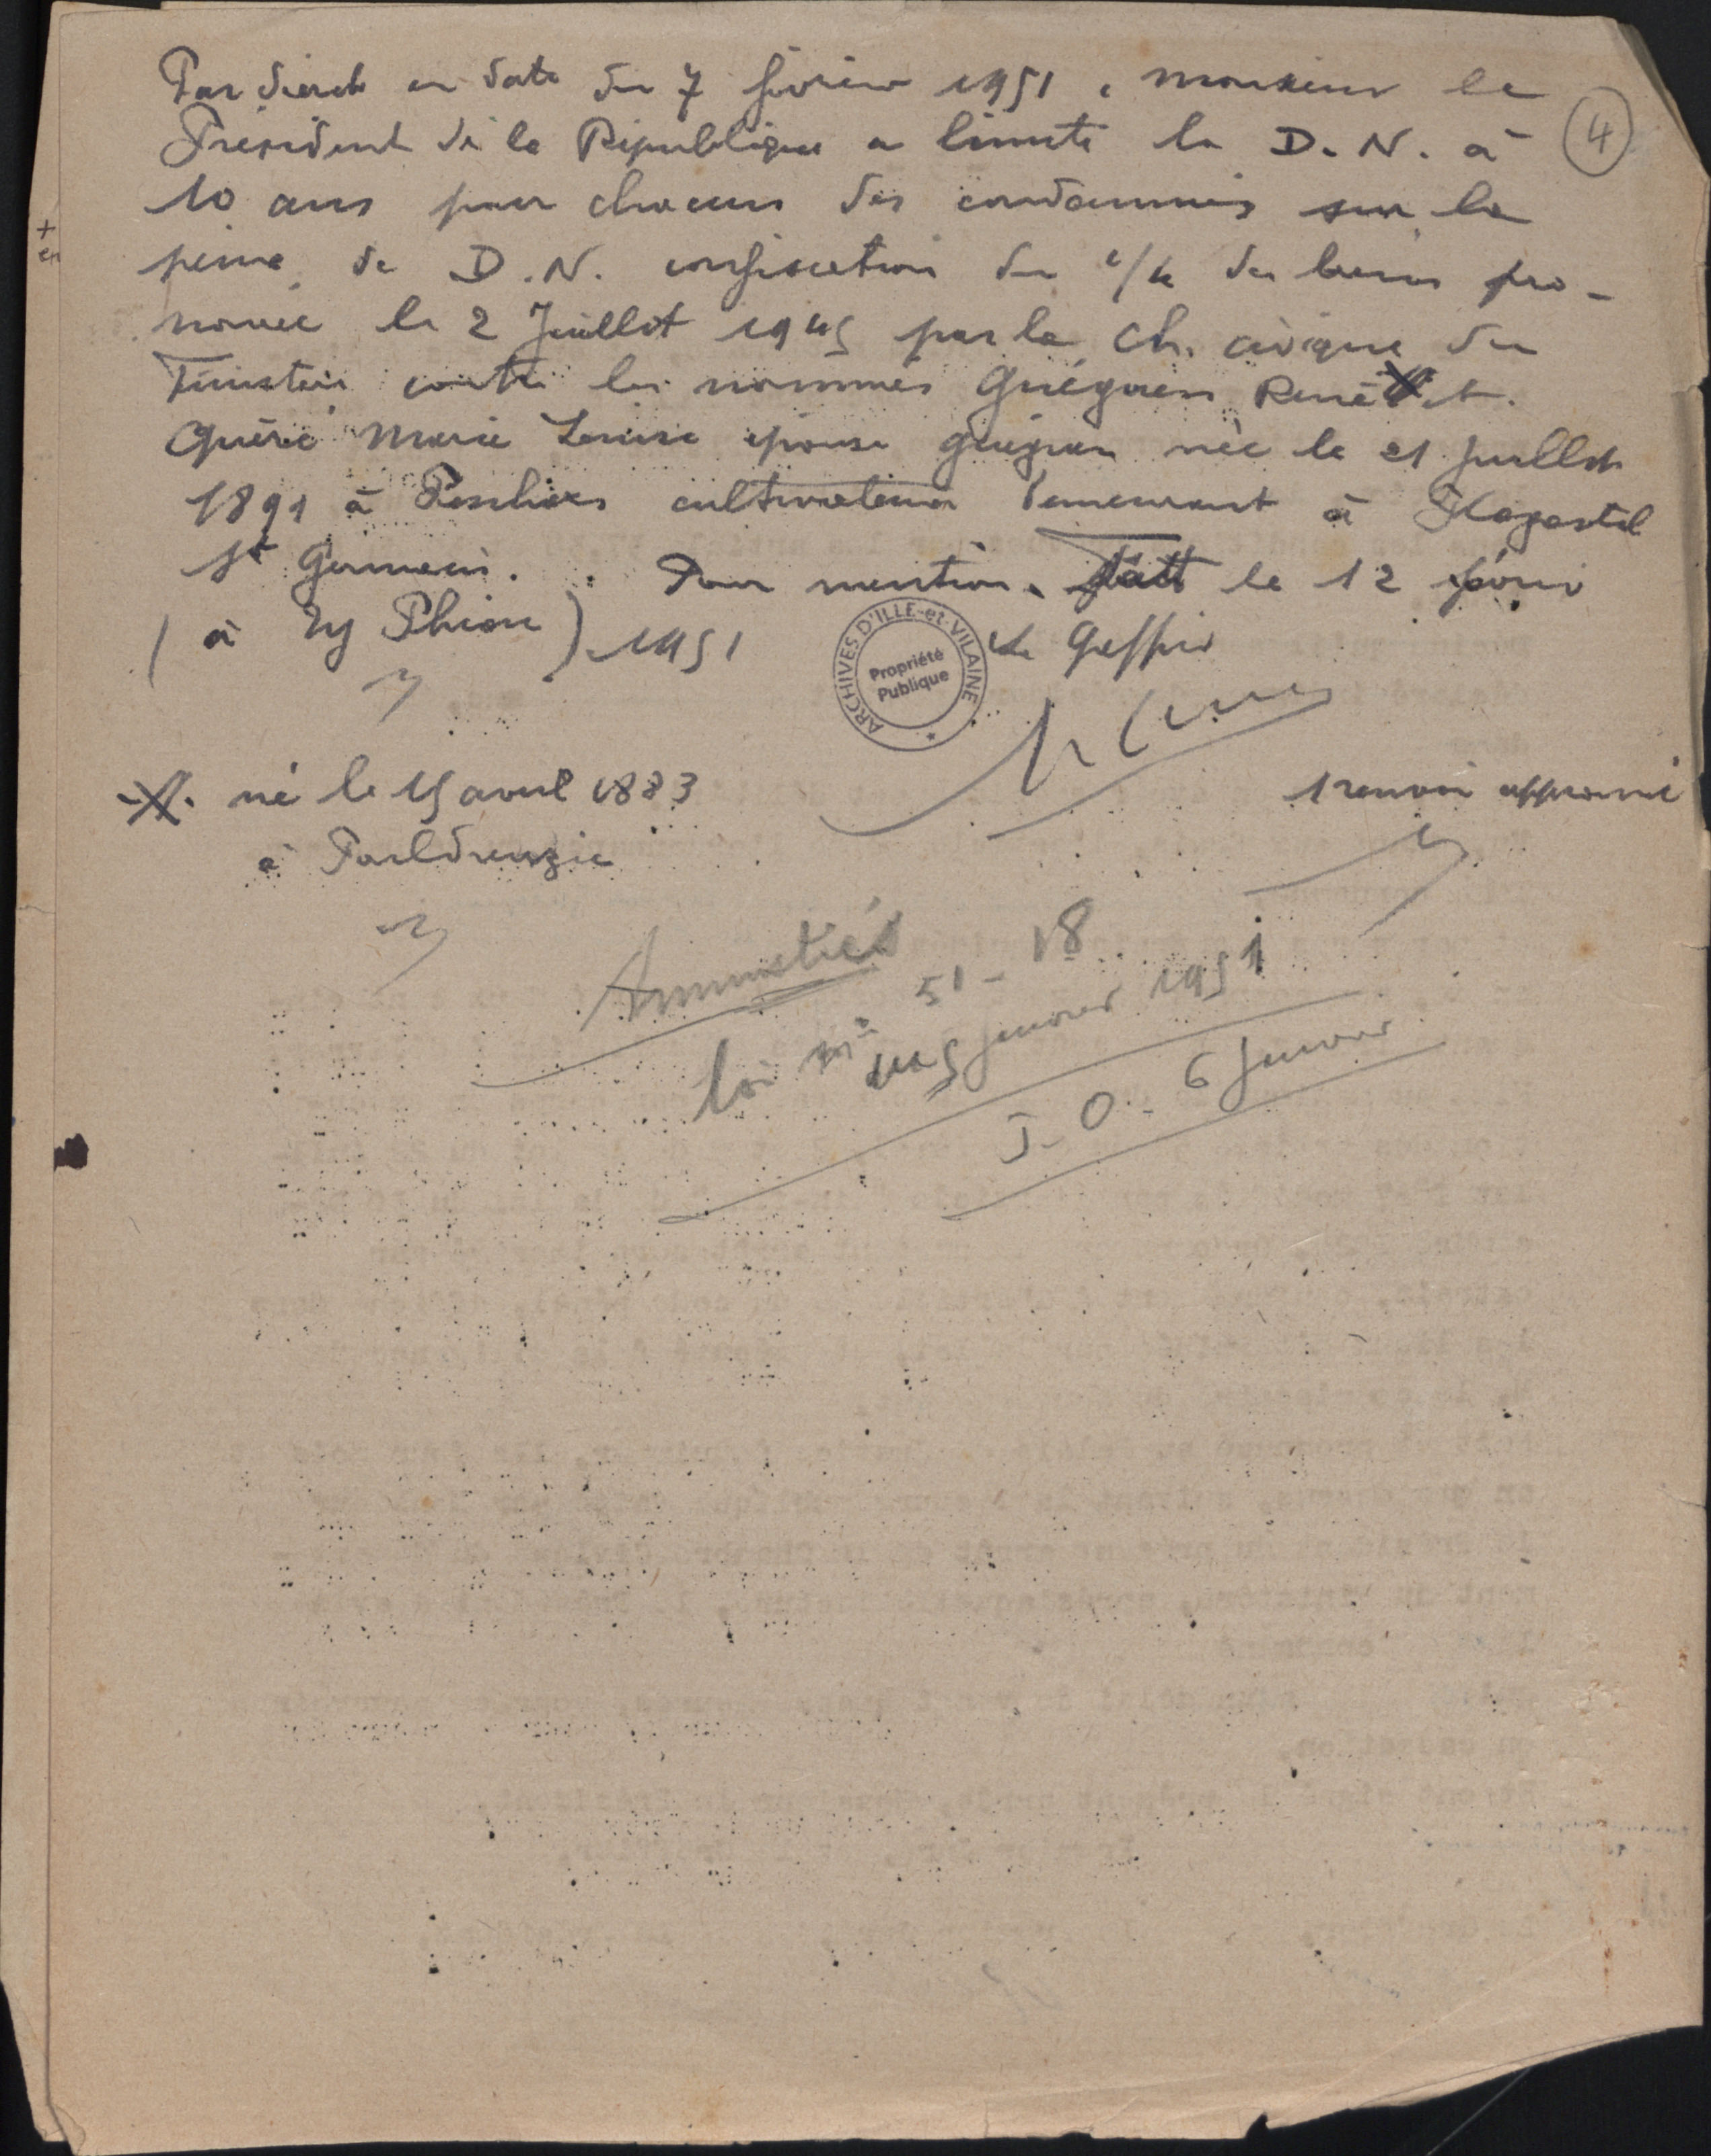 Par décret en date du 7 février 1951, Monsieur le
Président de la République a limité la D.N. à
10 ans pour chacun des condamnés sur la
peine de D.N. confiscation du 1/4 des biens pro-
noncée le 2 Juillet 1945 par la Ch. civique du
Finistère contre les nommés Guéguen René et
Quéré Marie Louise épouse Guéguen née le 21 Juillet
1891 à cultivateurs demeurant à Plogastel
St Germain. Pour mention. le 12 février
(à ) 1951 Le Greffier
né le 15 avril 1883 1 renvoi approuvé
à Pouldreuzic
Amnistiés
loi n° 51-18
du 5 janvier 1951
J.O. 6 janvier
4
+
en
ARCHIVES D'ILLE-et-VILAINE
Propriété
Publique